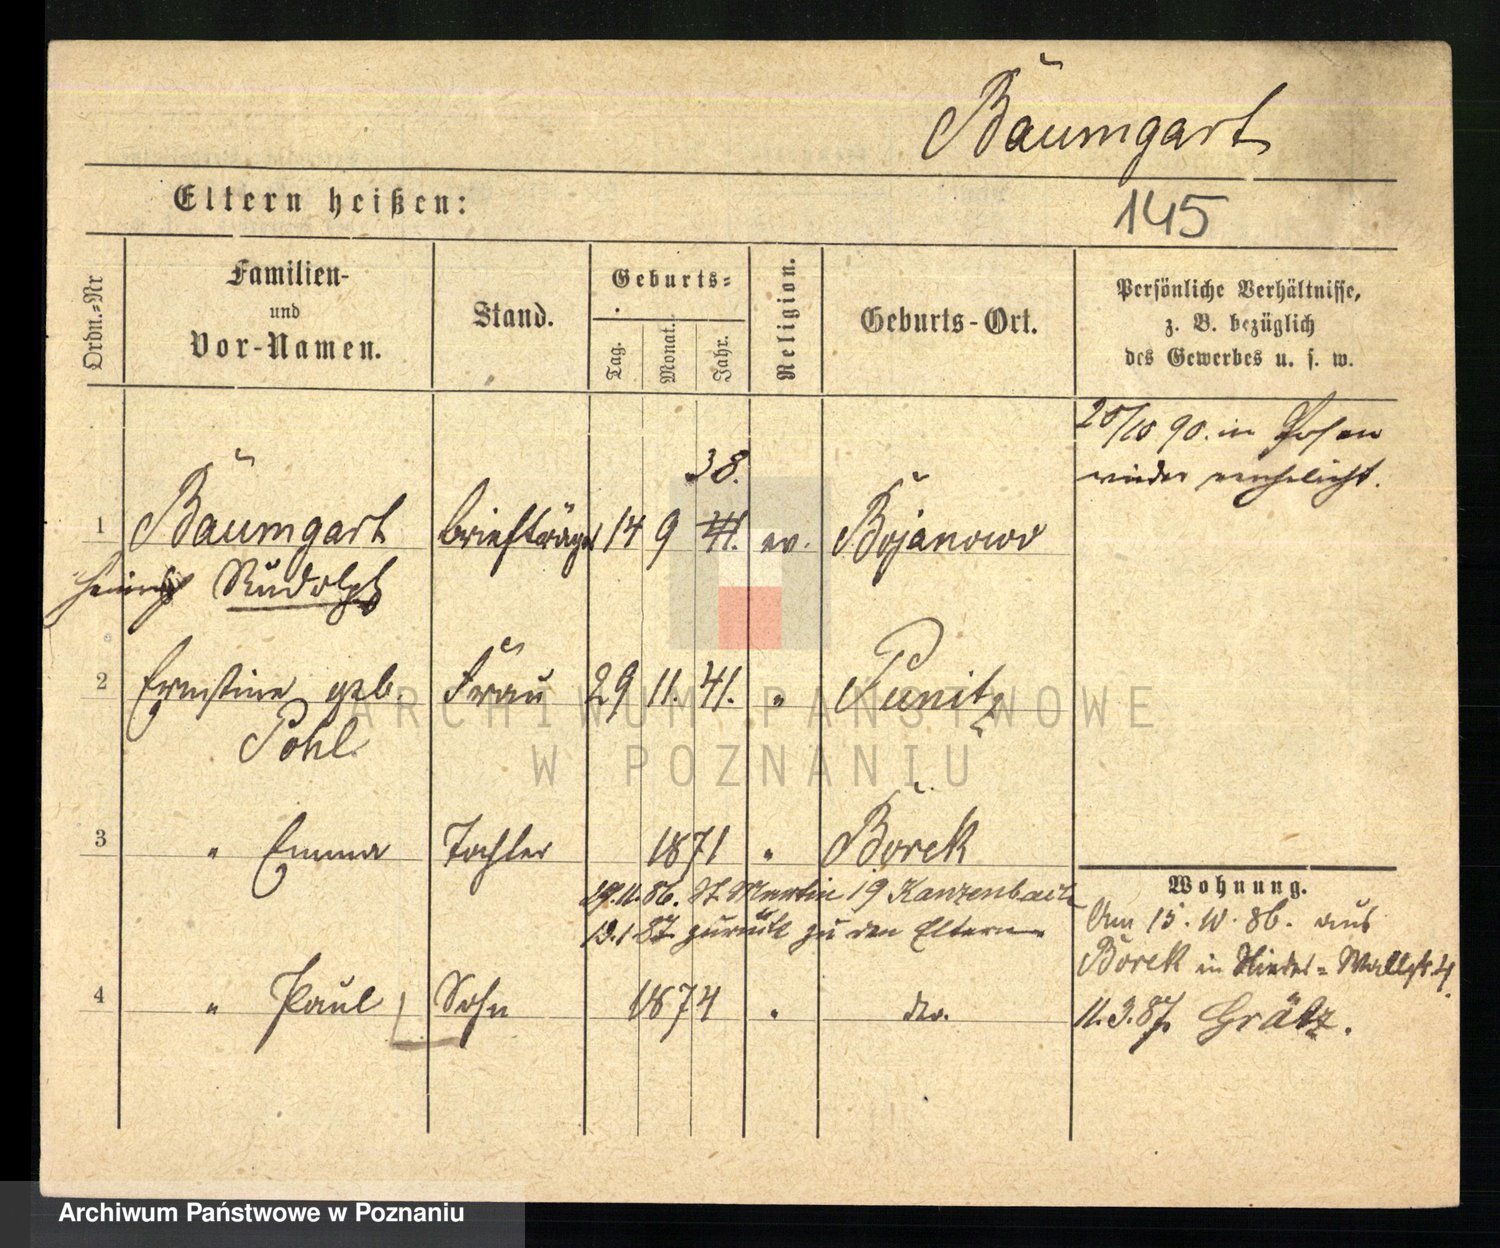 Baumgart
Eltern heißen:
145
Ordn.-Nr
Familien-
und
Vor-Namen.
Stand.
Geburts-
Tag.
Monat.
Jahr.
Religion.
Geburts-Ort.
Persönliche Verhältnisse,
z. B. bezüglich
des Gewerbes u. s. w.
25/10 90. in Posen
wieder verehelicht.
38.
1 Baumgart Briefträger 14 9 41. ev. Bojanowo
Heinrich Rudolph
2 Ernstine geb. Frau 29 11. 41. " Punitz
Pohl
3 " Emma Tochter 1871 " Borek
19.11.86. St Martin 19 Kanzenbach
13.1 87 zurück zu den Eltern
Wohnung.
Am 15.10.86. aus
Borek in Nieder-Wallstr 4.
4 " Paul Sohn 1874 " do.
11.3.87 Grätz.
ARCHIWUM PAŃSTWOWE
W POZNANIU
Archiwum Państwowe w Poznaniu